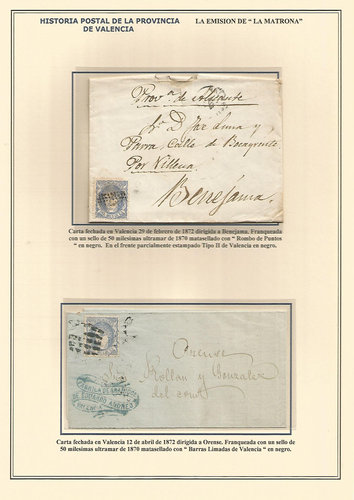 HISTORIA POSTAL DE LA PROVINCIA
DE VALENCIA
LA EMISION DE “ LA MATRONA”
Prov.ª de Alicante
Sr. D. José Luna y
Parra, Calle de Benejama
Por Villena
Benejama.
Carta fechada en Valencia 29 de febrero de 1872 dirigida a Benejama. Franqueada
con un sello de 50 milesimas ultramar de 1870 matasellado con “ Rombo de Puntos
” en negro. En el frente parcialmente estampado Tipo II de Valencia en negro.
Orense
Sres Rollan y Gonzalez
del com
DE EDUARDO
VALENCIA
Carta fechada en Valencia 12 de abril de 1872 dirigida a Orense. Franqueada con un sello de
50 milesimas ultramar de 1870 matasellado con “ Barras Limadas de Valencia ” en negro.